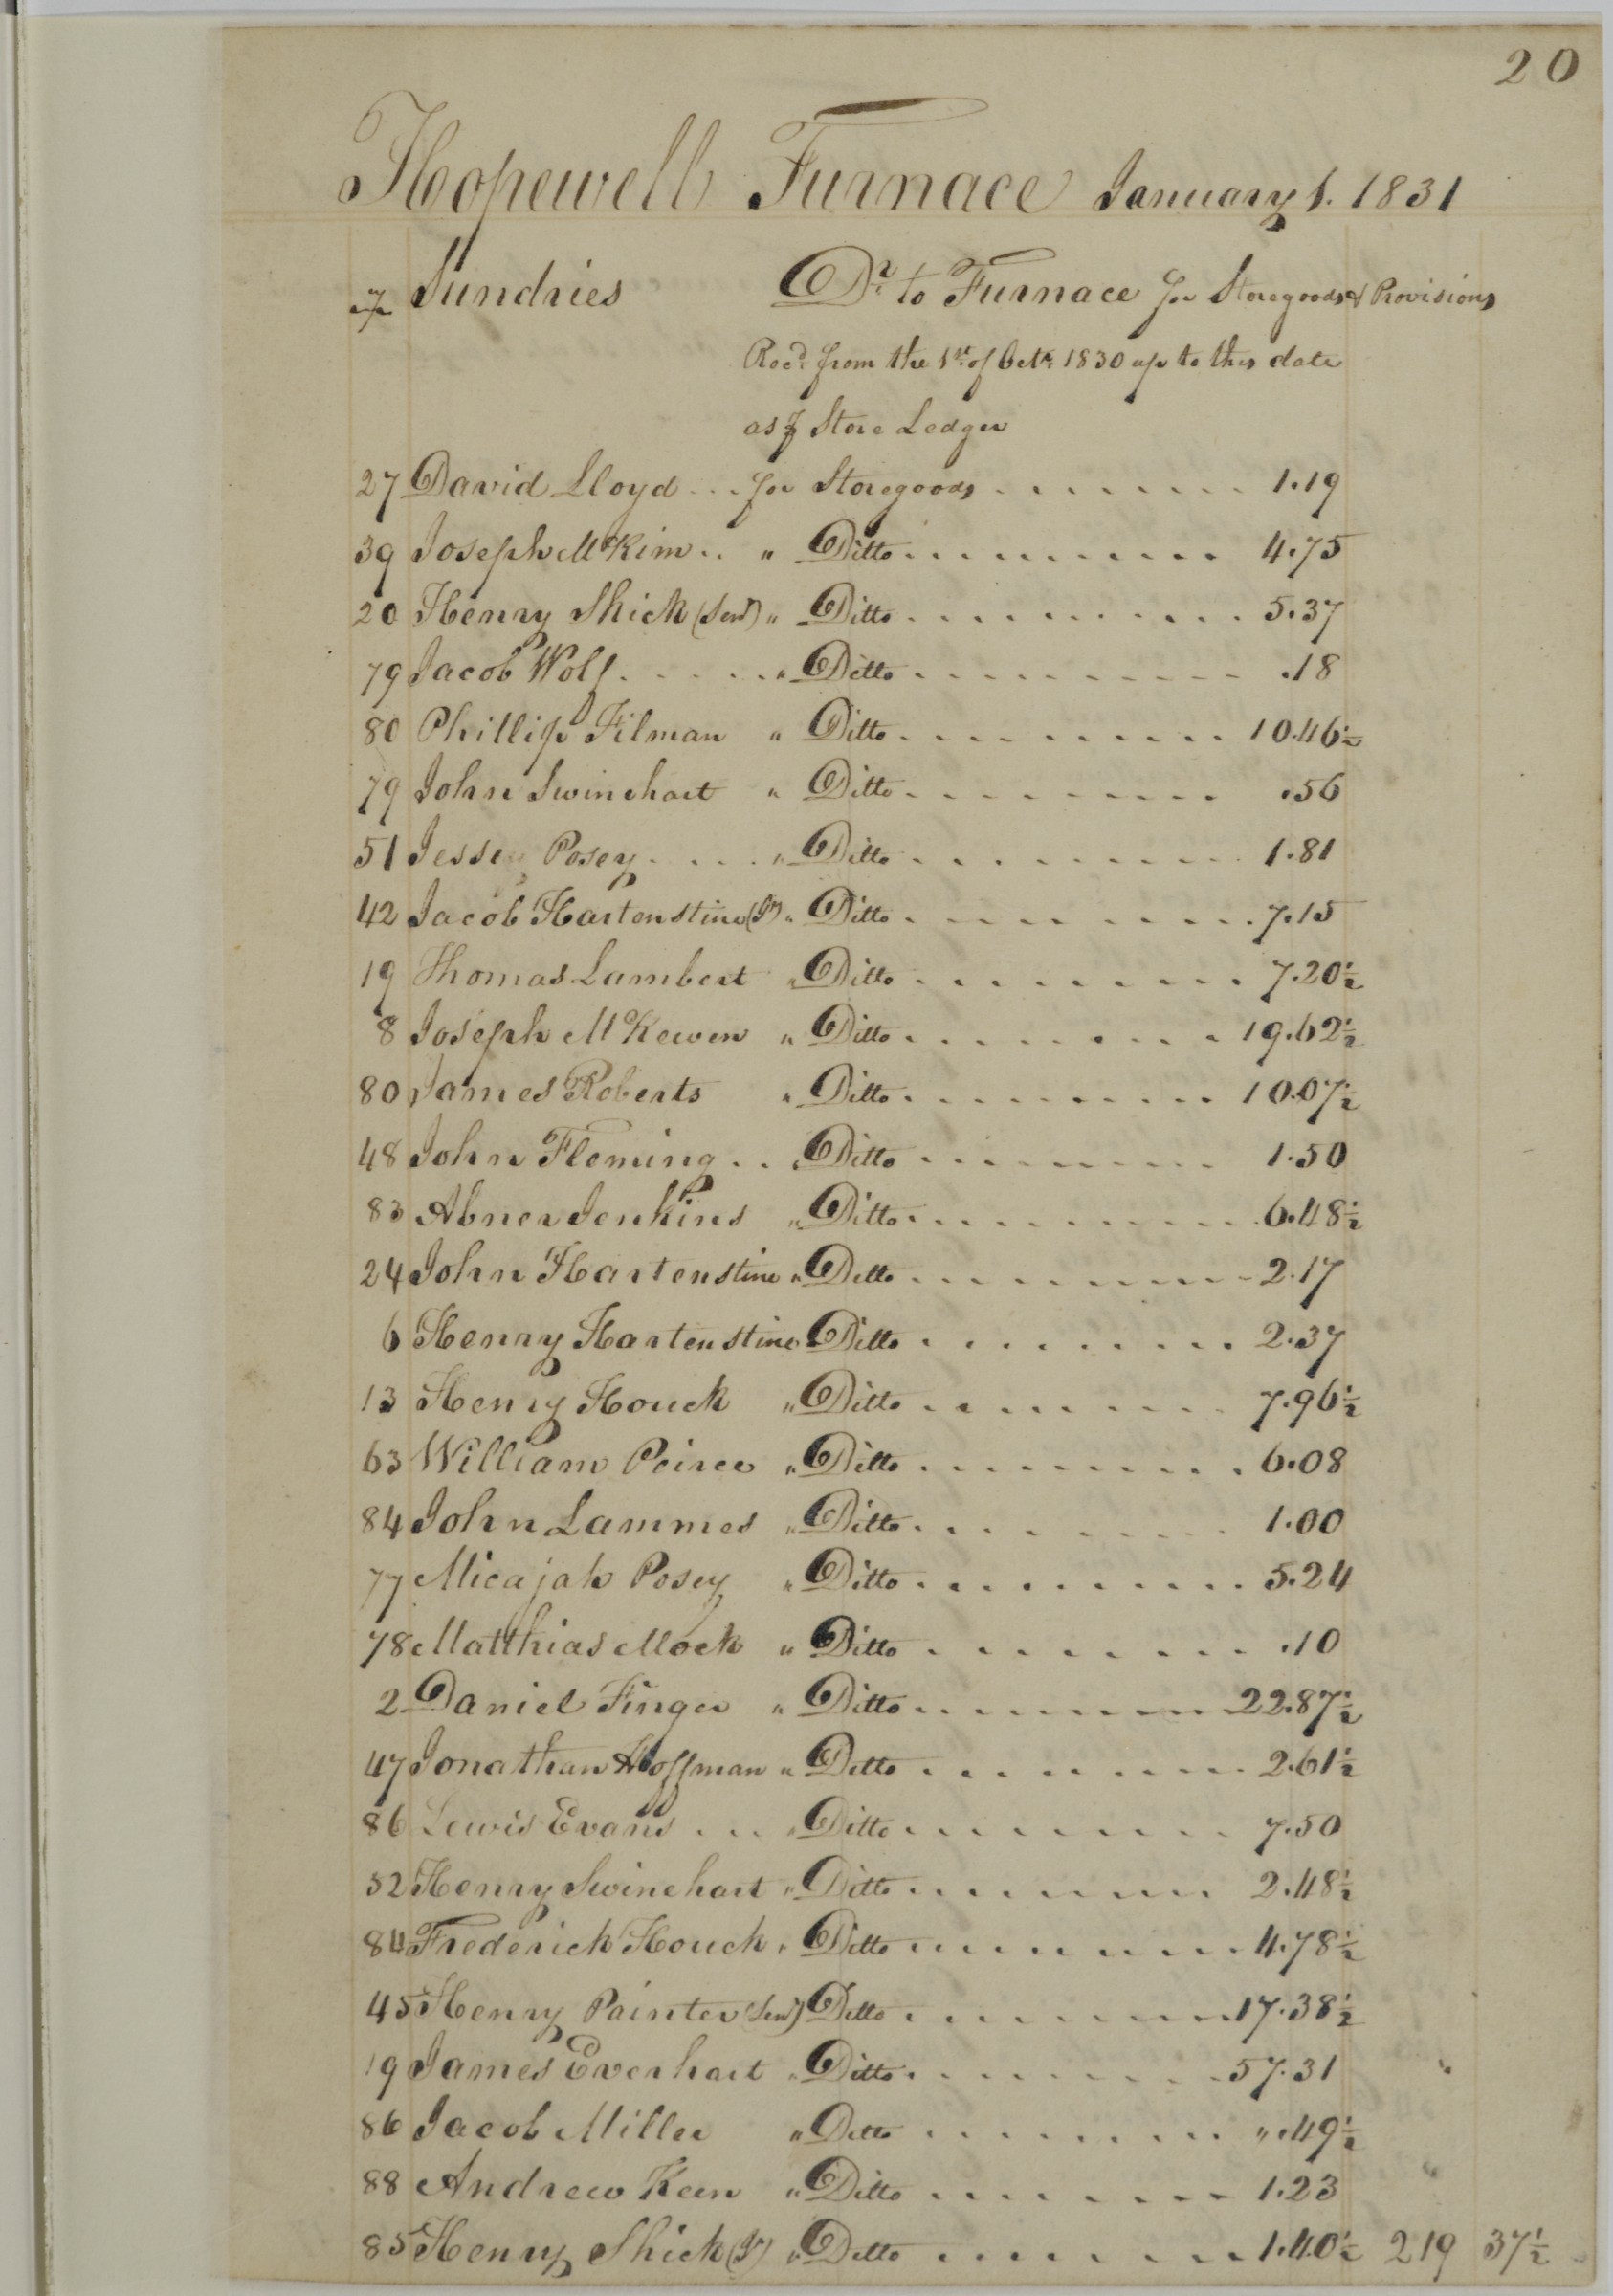 20
Hopewell Furnace January 1. 1831
Sundries Dr. to Furnace for Storegoods & Provisions
Recd. from the 1st. of Octr. 1830 up to this date
as ⅌ Store Ledger
27 David Lloyd ... for Storegoods ......... 1.19
39 Joseph McKim .. " Ditto ......... 4.75
20 Henry Shick (Senr) " Ditto .......... 5.37
79 Jacob Wolf ..... " Ditto .......... .18
80 Phillip Filman " Ditto .......... 10.46½
79 John Swinehart " Ditto ......... .56
51 Jesse Posey .... " Ditto .......... 1.81
42 Jacob Hartenstine (Jr) " Ditto .......... 7.15
19 Thomas Lambert " Ditto ......... 7.20½
8 Joseph McKewen " Ditto ......... 19.62½
80 James Roberts " Ditto ......... 10.07½
48 John Fleming .. " Ditto ......... 1.50
83 Abner Jenkins " Ditto .......... 6.48½
24 John Hartenstine " Ditto ......... 2.17
6 Henry Hartenstine " Ditto ......... 2.37
13 Henry Houck " Ditto ......... 7.96½
63 William Peirce " Ditto ......... 6.08
84 John Lammes " Ditto ......... 1.00
77 Micajah Posey " Ditto .......... 5.24
78 Matthias Mock " Ditto ......... .10
2 Daniel Finger " Ditto ......... 22.87½
47 Jonathan Hoffman " Ditto ......... 2.61½
86 Lewis Evans ... " Ditto ......... 7.50
52 Henry Swinehart " Ditto ........ 2.48½
84 Frederick Houck " Ditto ......... 4.78½
45 Henry Painter (Senr) Ditto ......... 17.38½
19 James Everhart " Ditto ......... 57.31
86 Jacob Miller " Ditto ......... ".49½
88 Andrew Keen " Ditto ......... 1.23
85 Henry Shick (Jr) " Ditto ......... 1.40½ 219 37½